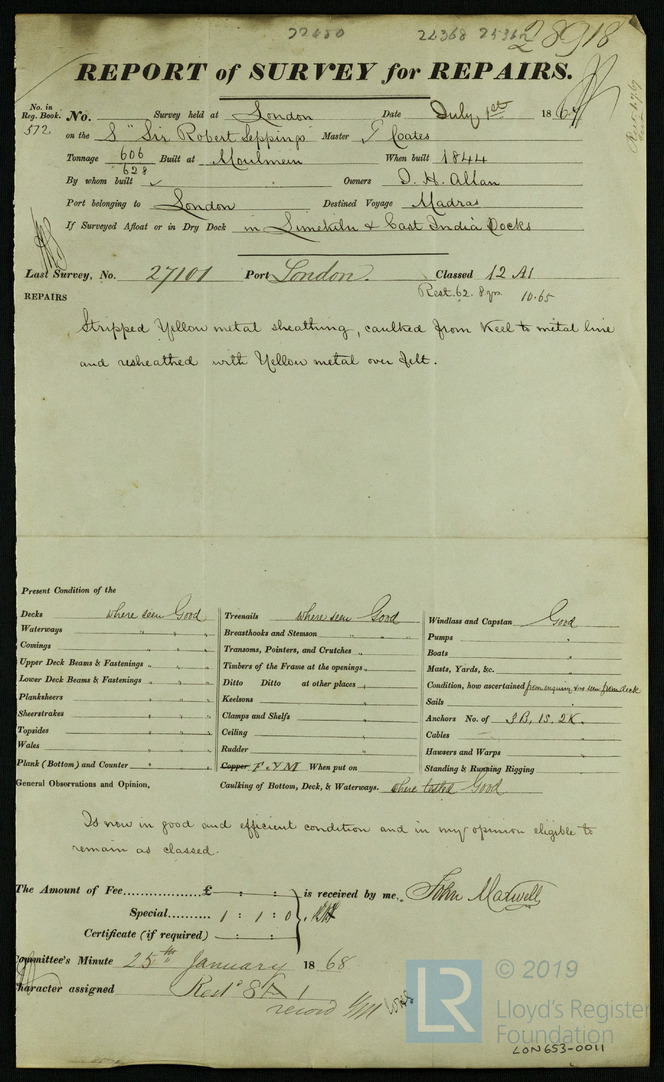 22368 25362 28918
REPORT of SURVEY for REPAIRS.
No. in Reg. Book. No. Survey held at London Date July 1st 186
572 on the S "Sir Robert Seppings" Master T Coates
Tonnage 606 Built at Moulmein When built 1844
628
By whom built ✓ Owners D. H. Allan
Port belonging to London Destined Voyage Madras
If Surveyed Afloat or in Dry Dock in Limekiln & East India Docks
Last Survey, No. 27101 Port London. Classed 12 A1
Rest. 62. 8 yrs. 10.65
REPAIRS
Stripped Yellow metal sheathing, caulked from Keel to metal line
and resheathed with Yellow metal over felt.
Present Condition of the
Decks where seen Good
Waterways " " "
Comings " " "
Upper Deck Beams & Fastenings " "
Lower Deck Beams & Fastenings " "
Planksheers " "
Sheerstrakes " "
Topsides " "
Wales " "
Plank (Bottom) and Counter " "
Treenails where seen Good
Breasthooks and Stemson " " "
Transoms, Pointers, and Crutches " "
Timbers of the Frame at the openings "
Ditto Ditto at other places "
Keelsons "
Clamps and Shelfs "
Ceiling "
Rudder "
Copper F. & Y M When put on
Caulking of Bottom, Deck, & Waterways. where tested Good
Windlass and Capstan Good
Pumps "
Boats "
Masts, Yards, &c. "
Condition, how ascertained from enquiry and seen from deck
Sails "
Anchors No. of 3B, 1S. 2K.
Cables
Hawsers and Warps "
Standing & Running Rigging "
General Observations and Opinion,
Is now in good and efficient condition and in my opinion eligible to
remain as classed.
The Amount of Fee............... £ : : is received by me, John Maxwell
Special.......... 1 : 1 : 0
Certificate (if required) : :
Committee's Minute 25th January 1868
Character assigned Restd 8 A 1
record
© 2019
LR
Lloyd's Register
Foundation
LON653-0011